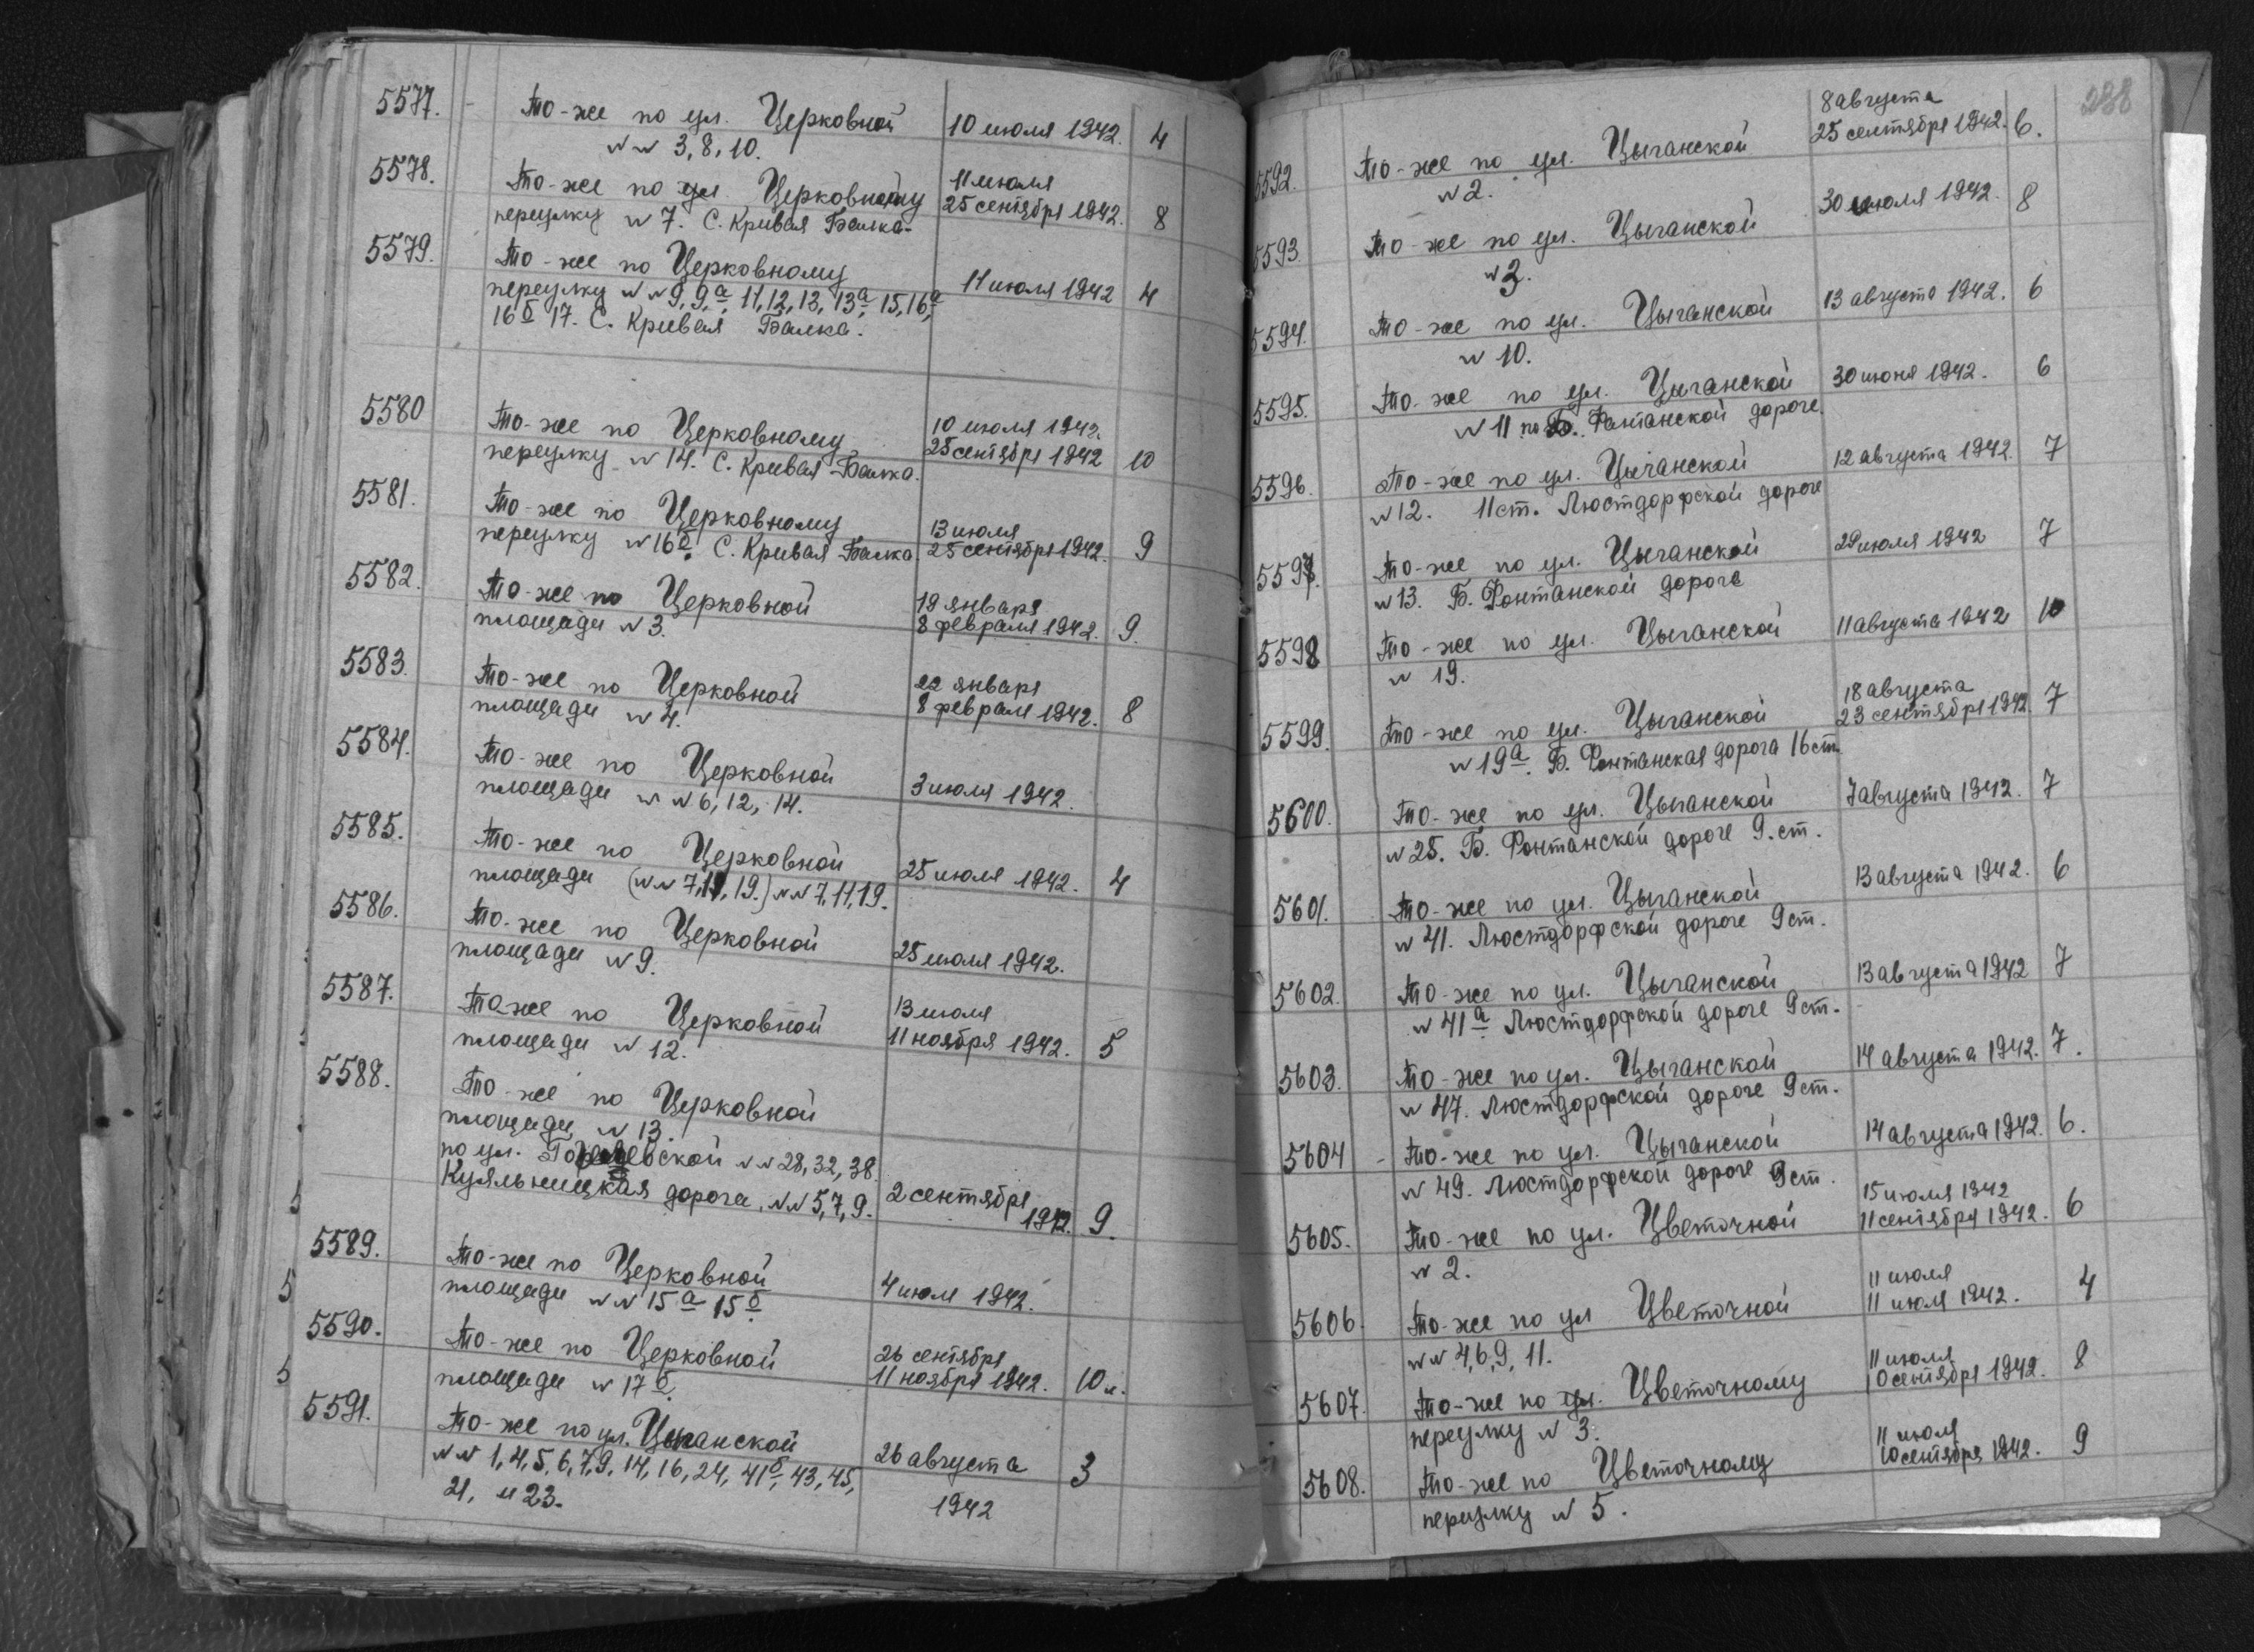 5577. То-же по ул. Церковной 10 июля 1942. 4
№№ 3, 8, 10.
5578. То-же по ул Церковному 11 июля
переулку № 7. С. Кривая Балка. 25 сентября 1942. 8
5579. То-же по Церковному
переулку №№ 9, 9а, 11, 12, 13, 13а, 15, 16а, 11 июля 1942 4
16б 17. С. Кривая Балка.
5580 То-же по Церковному 10 июля 1942.
переулку № 14. С. Кривая-Балка. 25 сентября 1942 10
5581. То-же по Церковному 13 июля
переулку № 16б. С. Кривая-Балка. 25 сентября 1942. 9
5582. То-же по Церковной 19 января
площади № 3. 8 февраля 1942. 9.
5583. То-же по Церковной 22 января
площади № 4. 8 февраля 1942. 8
5584. То-же по Церковной
площади №№ 6, 12, 14. 3 июля 1942.
5585. То-же по Церковной
площади (№№ 7, 11, 19.) №№ 7, 11, 19. 25 июля 1942. 4
5586. То-же по Церковной
площади № 9. 25 июля 1942.
5587. То-же по Церковной 13 июля
площади № 12. 11 ноября 1942. 5
5588. То-же по Церковной
площади № 13.
по ул. №№ 28, 32, 38.
Куяльницкая дорога, №№ 5, 7, 9. 2 сентября
1942. 9.
5589. То-же по Церковной
площади №№ 15а 15б. 4 июля 1942.
5590. То-же по Церковной 26 сентября
площади № 17б. 11 ноября 1942. 10 л.
5591. То-же по ул. Цыганской
№№ 1, 4, 5, 6, 7, 9, 14, 16, 24, 41б, 43, 45, 26 августа 3
21, и 23. 1942
5
5
5
288
8 августа
5592. То-же по ул. Цыганской 25 сентября 1942. 6.
№ 2.
5593 То-же по ул. Цыганской 30 июля 1942. 8
№ 3.
5594. То-же по ул. Цыганской 13 августа 1942. 6
№ 10.
5595. То-же по ул. Цыганской 30 июня 1942. 6
№ 11 по Б. Фонтанской дороге.
5596. То-же по ул. Цыганской 12 августа 1942. 7
№ 12. 11 ст. Люстдорфской дороге
5597. То-же по ул. Цыганской 29 июля 1942 7
№ 13. Б. Фонтанской дороге
5598 То-же по ул. Цыганской 11 августа 1942 10
№ 19.
18 августа
5599. То-же по ул. Цыганской 23 сентября 1942. 7
№ 19а. Б. Фонтанская дорога 16 ст.
5600. То-же по ул. Цыганской 7 августа 1942. 7
№ 25. Б. Фонтанской дороге 9. ст.
5601. То-же по ул. Цыганской 13 августа 1942. 6
№ 41. Люстдорфской дороге 9 ст.
5602. То-же по ул. Цыганской 13 августа 1942 7
№ 41а Люстдорфской дороге 9 ст.
5603. То-же по ул. Цыганской 14 августа 1942. 7.
№ 47. Люстдорфской дороге 9 ст.
5604 - То-же по ул. Цыганской 14 августа 1942. 6.
№ 49. Люстдорфской дороге 9 ст.
15 июля 1942
5605. То-же по ул. Цветочной 11 сентября 1942. 6
№ 2.
11 июля
5606. То-же по ул Цветочной 11 июля 1942. 4
№№ 4, 6, 9, 11.
11 июля
5607. То-же по ул. Цветочному 10 сентября 1942. 8
переулку № 3.
11 июля
5608. То-же по Цветочному 10 сентября 1942. 9
переулку № 5.